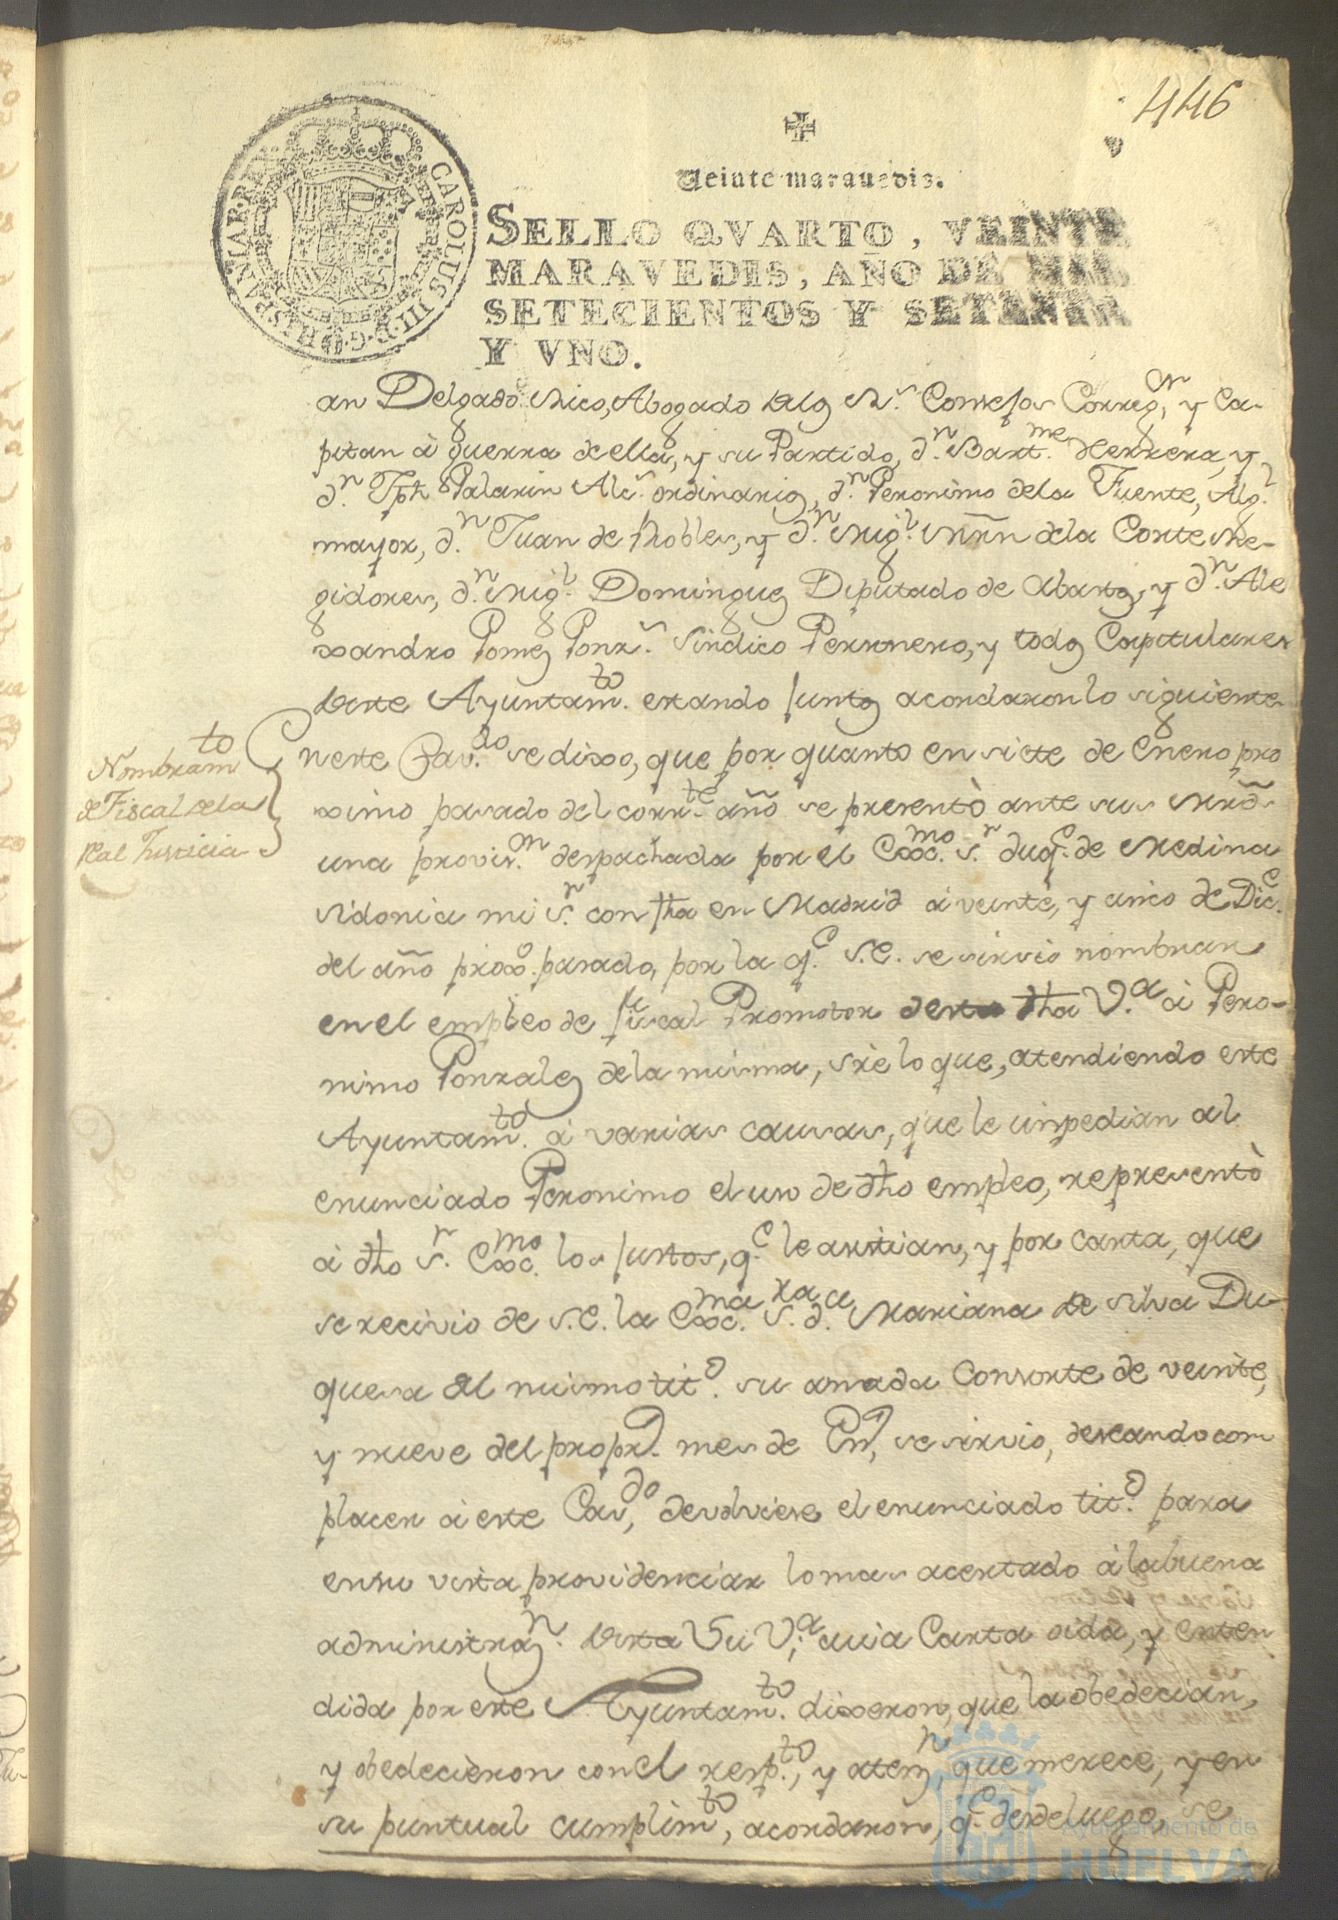 446
Veinte maravedis.
SELLO QVARTO, VEINTE
MARAVEDIS, AÑO DE MIL
SETECIENTOS Y SETENTA
Y VNO.
CAROLUS III D. G. HISPANIAR. R
an Delgado Rico, Abogado delos Rs. Consejos Corregr. y Ca-
pitan à guerra de ella, y su Partido, dn. Bartme. Herrera, y
dn. Jph. Palarin Alcs. ordinarios, dn. Geronimo dela Fuente, Algl.
mayor, dn. Juan de Robles, y dn. Migl. Mrñ dela Corte Re-
gidores, dn. Migl. Dominguez Diputado de Abastos, y dn. Ale
xandro Gomez Gonz. Sindico Personero, y todos Capitulares
deste Ayuntamto. estando juntos acordaron lo siguiente
Nombramto
de Fiscal dela
Real Justicia
neste Cavdo. se dixo, que por quanto en siete de Enero pro
ximo pasado del corrte. año se presentò ante sus Mrds
una provisn. despachada por el Excmo. Sr. duqe. de Medina
Sidonia mi Sr. con fha en Madrid à veinte, y cinco de Dice.
del año proxo. pasado, por la qe. S.E. se sirvio nombrar
en el empleo de fiscal Promotor desta dha Va. à Gero-
nimo Gonzalez dela misma, sre lo que, atendiendo este
Ayuntamto. à varias causas, que le impedian al
enunciado Geronimo el uso de dho empleo, representò
à dho Sr. Excmo. los justos, qe. le asistian, y por carta, que
se recivio de S.E. la Excma. Sra. da. Mariana de Silva Du-
quesa del mismo tito. su amada Consorte de veinte,
y nueve del propro. mes de Eno, se sirvio, deseando com
placer à este Cavdo, devolviese el enunciado tito. para
en su vista providenciar lo mas acertado à la buena
administran. desta Su Va; cuia Carta oida, y enten
dida por este Ayuntamto. dixeron, que la obedecian,
y obedecieron con el respto., y atenn, que merece, y en
su puntual cumplimto, acordaron, qe. desde luego, se
Ayuntamiento de
HUELVA